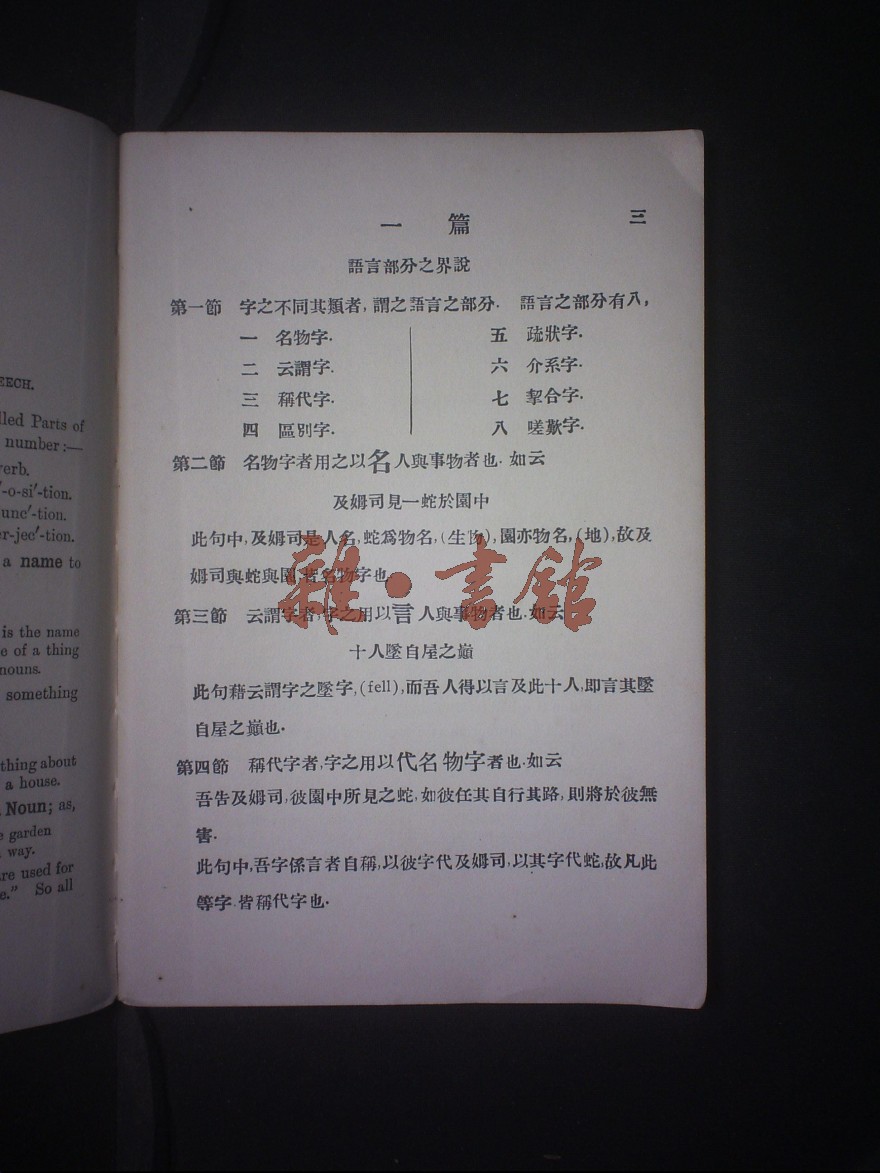 EECH.
lled Parts of
number :—
erb.
'-o-si'-tion.
unc'-tion.
er-jec'-tion.
a name to
is the name
e of a thing
nouns.
something
thing about
a house.
Noun; as,
e garden
way.
are used for
e." So all
三
一 篇
語言部分之界說
第一節 字之不同其類者,謂之語言之部分. 語言之部分有八,
一 名物字. 五 疏狀字.
二 云謂字. 六 介系字.
三 稱代字. 七 挈合字.
四 區別字. 八 嗟歎字.
第二節 名物字者用之以名人與事物者也.如云
及姆司見一蛇於園中
此句中,及姆司是人名,蛇爲物名,(生物),園亦物名,(地),故及
姆司與蛇與園,皆名物字也.
第三節 云謂字者,字之用以言人與事物者也.如云
十人墜自屋之巔
此句藉云謂字之墜字,(fell),而吾人得以言及此十人,即言其墜
自屋之巔也.
第四節 稱代字者,字之用以代名物字者也.如云
吾告及姆司,彼園中所見之蛇,如彼任其自行其路,則將於彼無
害.
此句中,吾字係言者自稱,以彼字代及姆司,以其字代蛇,故凡此
等字,皆稱代字也.
雜·書館